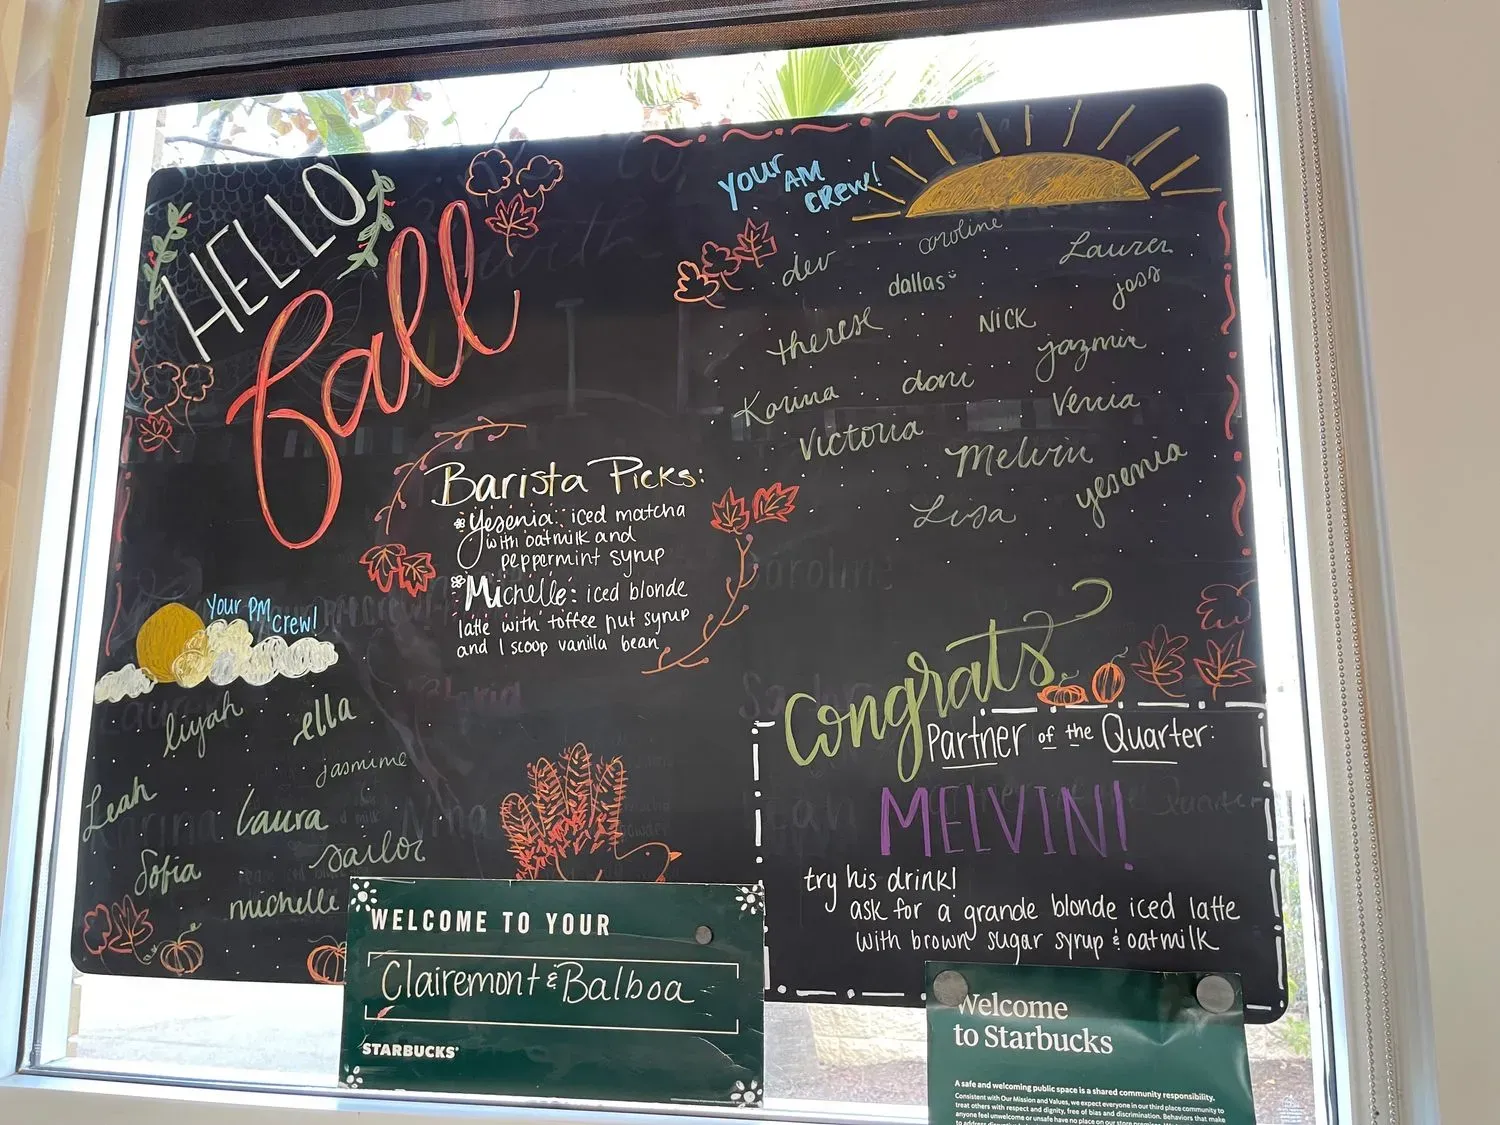 HELLO
fall
your AM
crew!
dev
caroline
Lauren
dallas
jess
therese
NICK
jazmin
Karina
dani
Vencia
Victoria
Melvin
yesenia
Lisa
Barista Picks:
Yesenia: iced matcha
with oatmilk and
peppermint syrup
Michelle: iced blonde
latte with toffee nut syrup
and 1 scoop vanilla bean
Your PM
crew!
liyah
ella
jasmine
Leah
Laura
Sofia
sailor
michelle
Congrats
Partner of the Quarter:
MELVIN!
try his drink!
ask for a grande blonde iced latte
with brown sugar syrup & oatmilk
WELCOME TO YOUR
Clairemont & Balboa
STARBUCKS
Welcome
to Starbucks
A safe and welcoming public space is a shared community responsibility.
Consistent with Our Mission and Values, we expect everyone in our third place community to
treat others with respect and dignity, free of bias and discrimination. Behaviors that make
anyone feel unwelcome or unsafe have no place on our store premises.